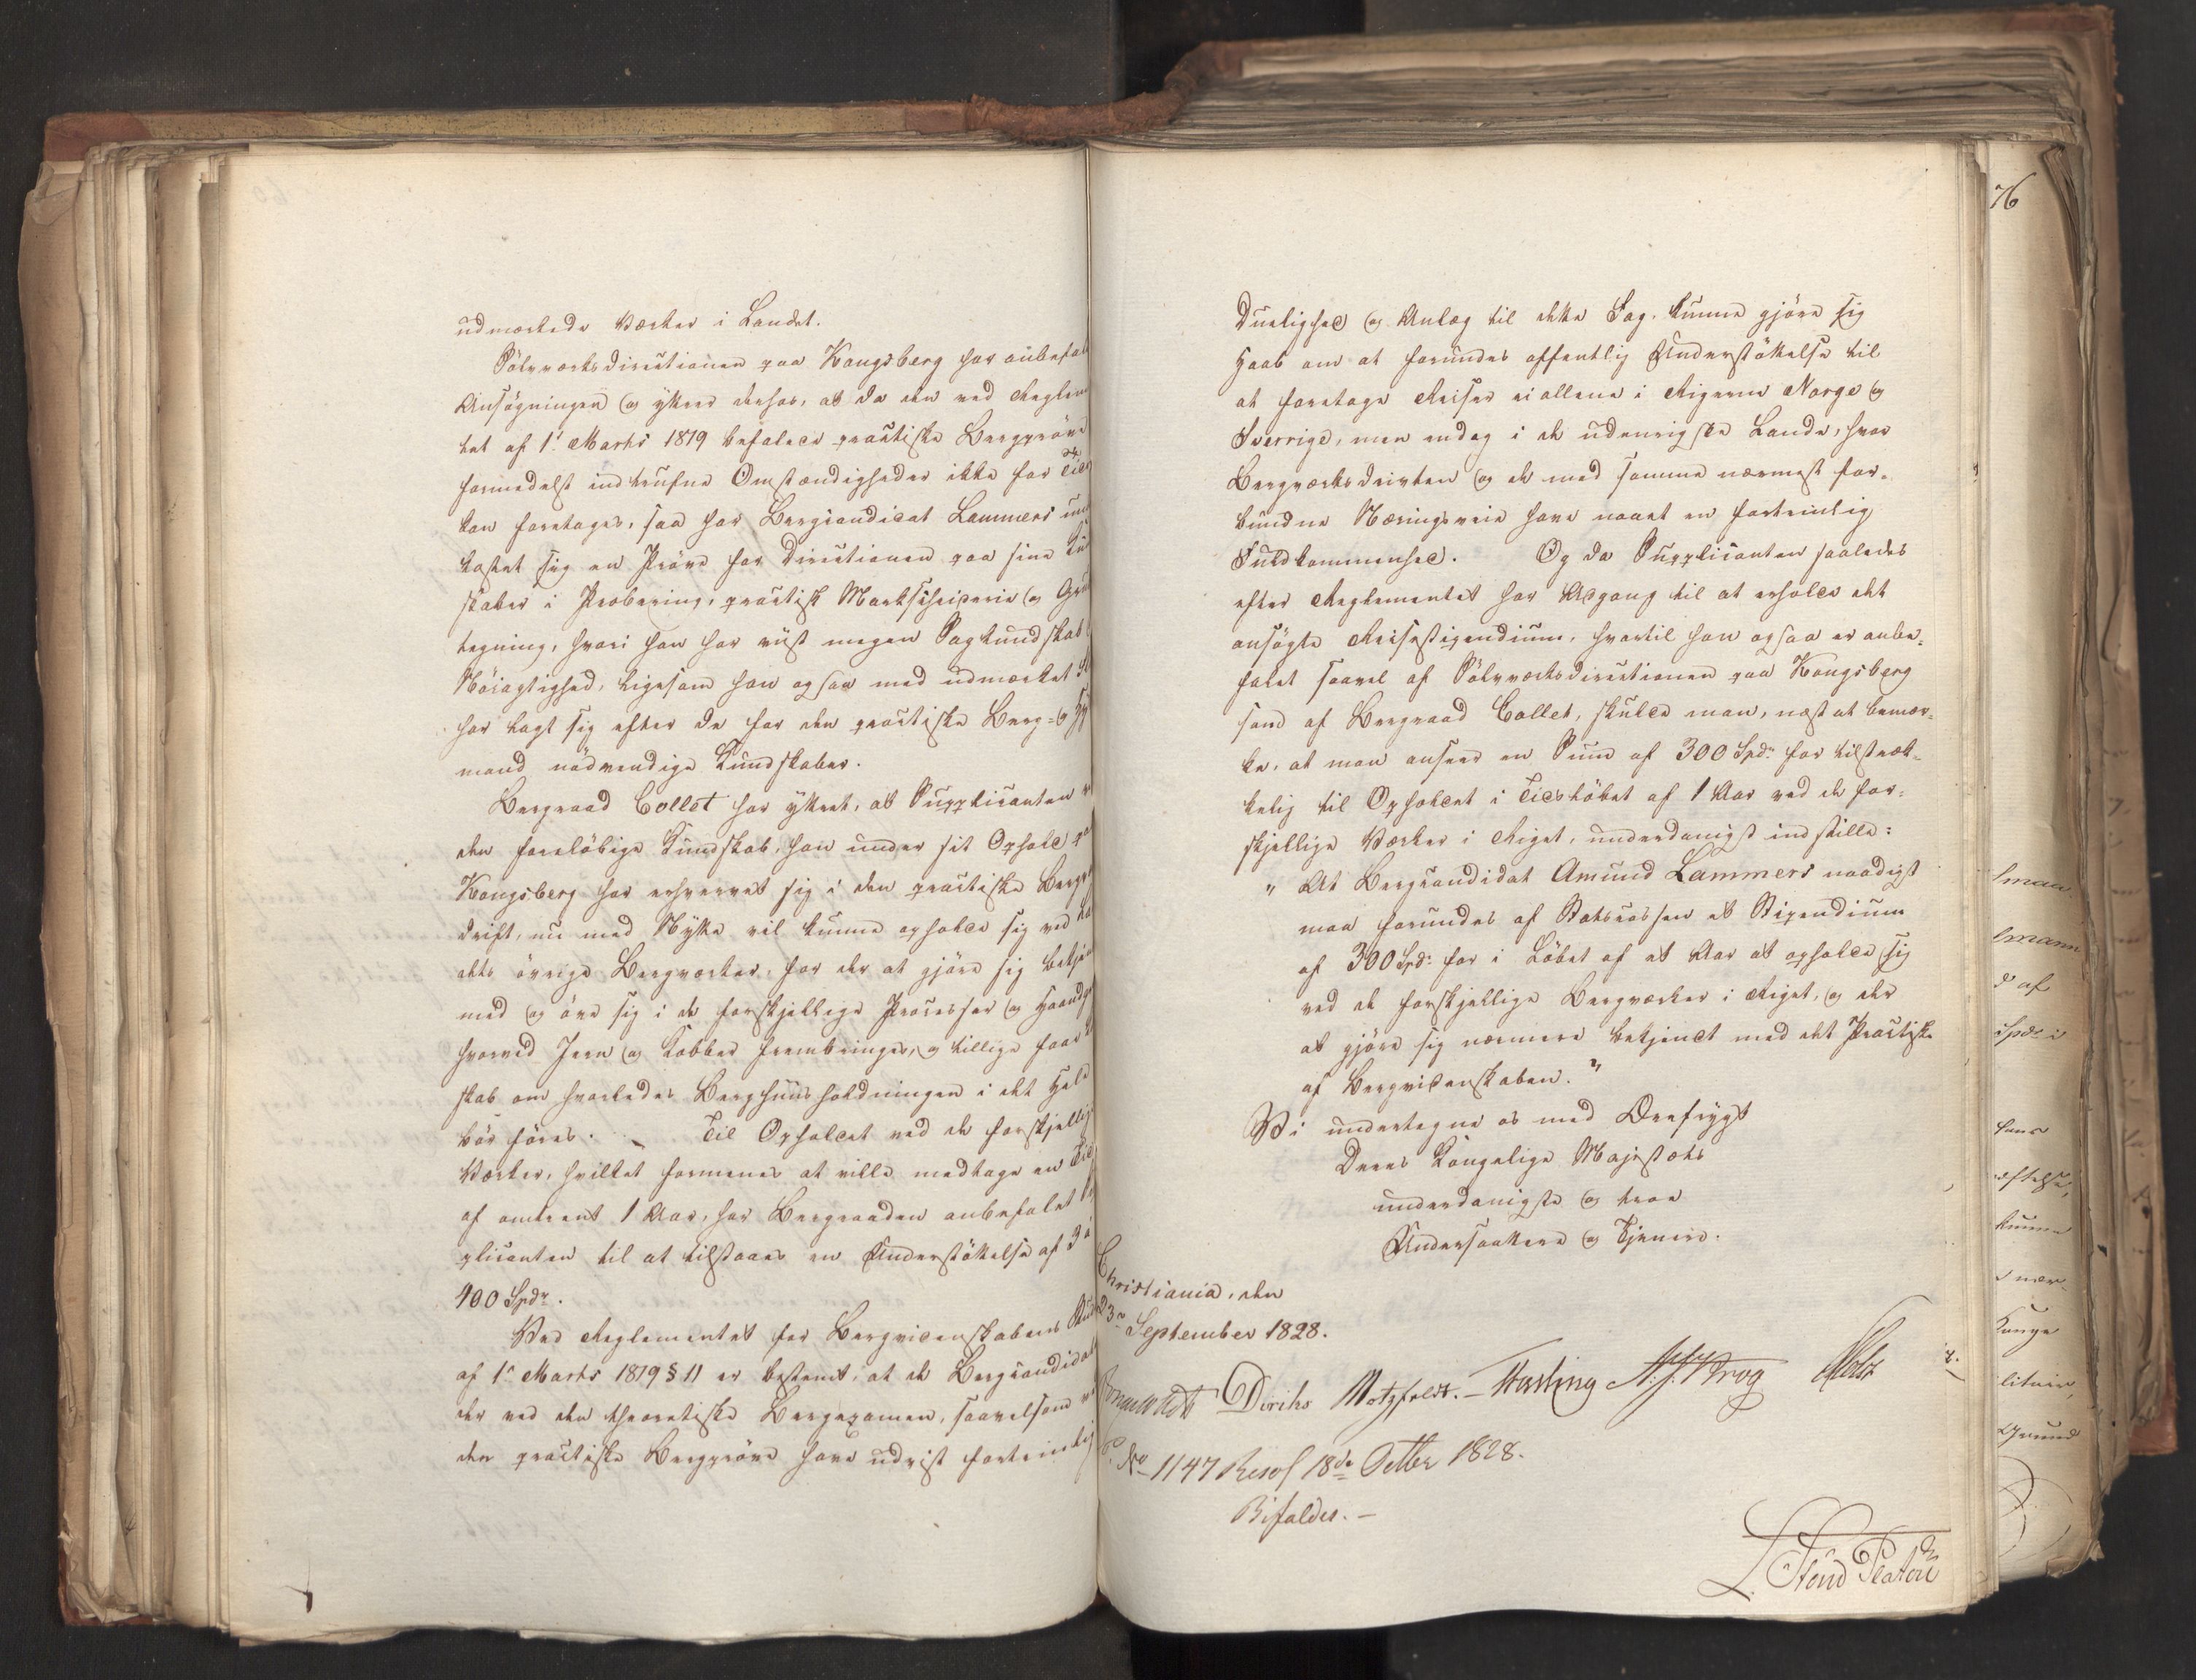 udmærkede Værker i Landet.
Sölvværksdirectionen paa Kongsberg har anbefal
Ansøgningen og yttret derhos, at da den ved Reglem
tet af 1' Marts 1819 befalede practiske Bergprøve
formedelst indtrufne Omstændigheder ikke for Tiden
kan foretages, saa har Bergcandidat Lammers un
kastet sig en Prøve for Directionen paa sine Kun
skaber i Probering, practisk Markscheiderie og Gru
tegning, hvori han har viist megen Sagkundskab
Nöiagtighed, ligesom han ogsaa med udmærket
har lagt sig efter de for den practiske Berg- og
mand nödvendige Kundskaber.
Bergraad Collet har yttret, at Supplicanten
den foreløbige Kundskab, han under sit Ophold pa
Kongsberg har erhvervet sig i den practiske Bergv
drift, nu med Nytte vil kunne opholde sig ved La
dets övrige Bergværker, for der at gjöre sig bekje
med og öve sig i de forskjellige Processer og Haandg
hvorved Jern og Kobber frembringes, og tillige faae
skab om hvorledes Berghuusholdningen i det Hele
bör föres. - Til Opholdet ved de forskjellig
Værker, hvilket formenes at ville medtage en Tid
af omtrent 1 Aar, har Bergraaden anbefalet
plicanten til at tilstaaes en Understöttelse af 3 à
400 Spdr.
Ved Reglementet for Bergvidenskabens
af 1' Marts 1819 § 11 er bestemt, at de Bergcandidat
der ved den theoretiske Bergexamen, saavelsom v
den practiske Bergprøve have udviist fortrinlig
Duelighed og Anlæg til dette Fag, kunne gjöre sig
Haab om at forundes offentlig Understöttelse til
at foretage Reiser ei allene i Rigerne Norge og
Sverrige, men endog i de udenrigske Lande, hvor
Bergværksdrivten og de med samme nærmest for-
bundne Næringsveie have naaet en fortrinlig
Fuldkommenhed. Og da Supplicanten saaledes
efter Reglementet har Adgang til at erholde det
ansøgte Reisestipendium, hvortil han ogsaa er anbe-
falet saavel af Sölvværksdirectionen paa Kongsberg
som af Bergraad Collet, skulde man, næst at bemær-
ke, at man anseer en Sum af 300 Spdr for tilstræk-
kelig til Opholdet i Tidslöbet af 1 Aar ved de for-
skjellige Værker i Riget, underdanigst indstille:
" At Bergcandidat Amund Lammers naadigst
maa forundes af Statscassen et Stipendium
af 300 Spd: for i Löbet af et Aar at opholde sig
ved de forskjellige Bergværker i Riget, og der
at gjöre sig nærmere bekjendt med det Practiske
af Bergvidenskaben. "
Vi undertegne os med Ærefrygt
Deres Kongelige Majestæts
underdanigste og troe
Undersaattere og Tjenere.
Christiania, den
23. September 1828.
Diriks Motzfeldt. - Fasting A. J. Krog Holst
No 1147 Resol 18de Octbr 1828.
Bifaldes. -
L. Stoud Platou
76